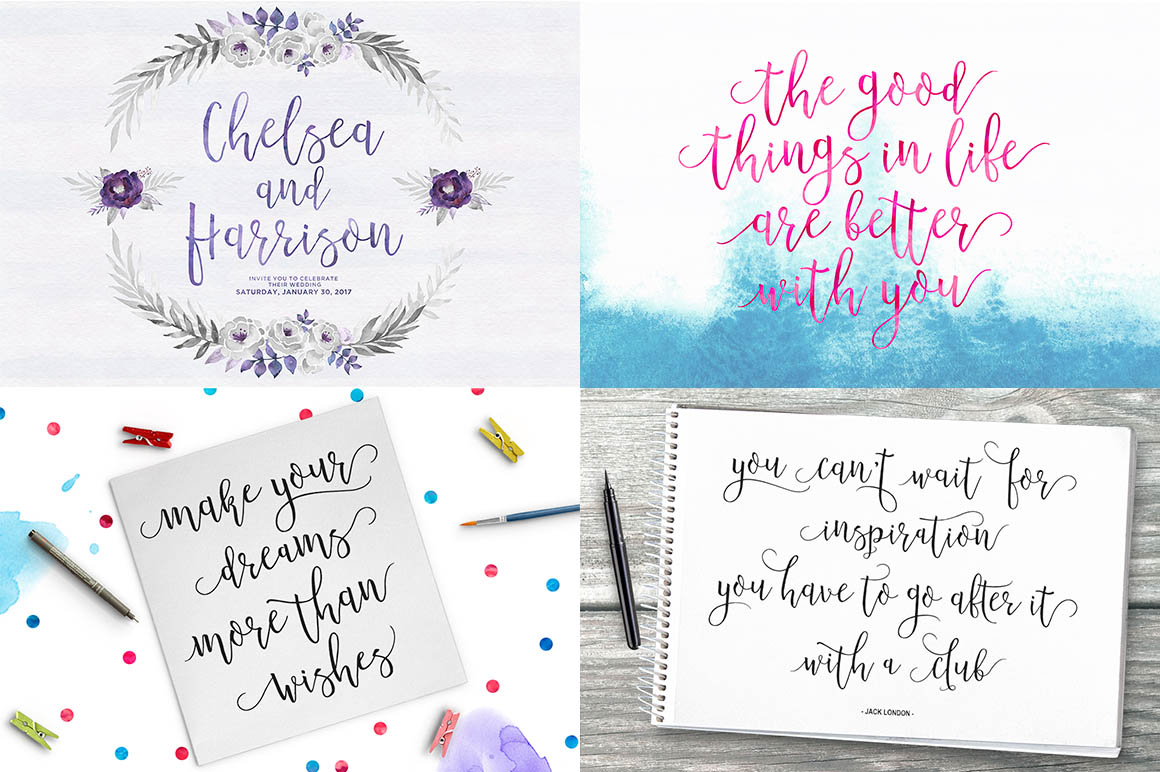 Chelsea
and
Harrison
INVITE YOU TO CELEBRATE
THEIR WEDDING
SATURDAY, JANUARY 30, 2017
the good
things in life
are better
with you
make your
dreams
more than
wishes
you can't wait for
inspiration
you have to go after it
with a club
- JACK LONDON -